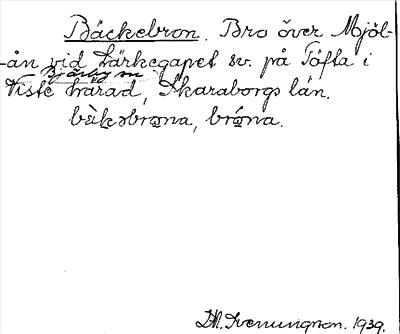 Bäckebron. Bro över Mjöl-
-ån vid Lärkegapet sv. på Töfta i
Bjärby sn
Viste härad, Skaraborgs län.
bäkəbrona, bróna.
D.A. Svenungson. 1939.